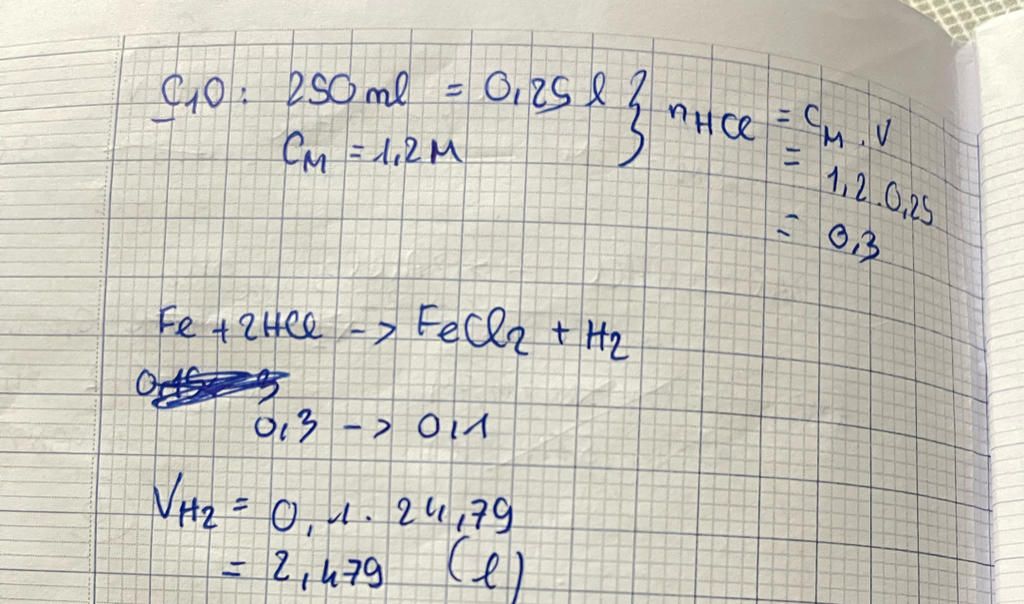 C10: 250ml = 0,25 l } nHCl = CM . V
CM = 1,2M
= 1,2.0,25
= 0,3
Fe + 2HCl -> FeCl2 + H2
0,3 -> 0,1
VH2 = 0,1. 24,79
= 2,479 (l)